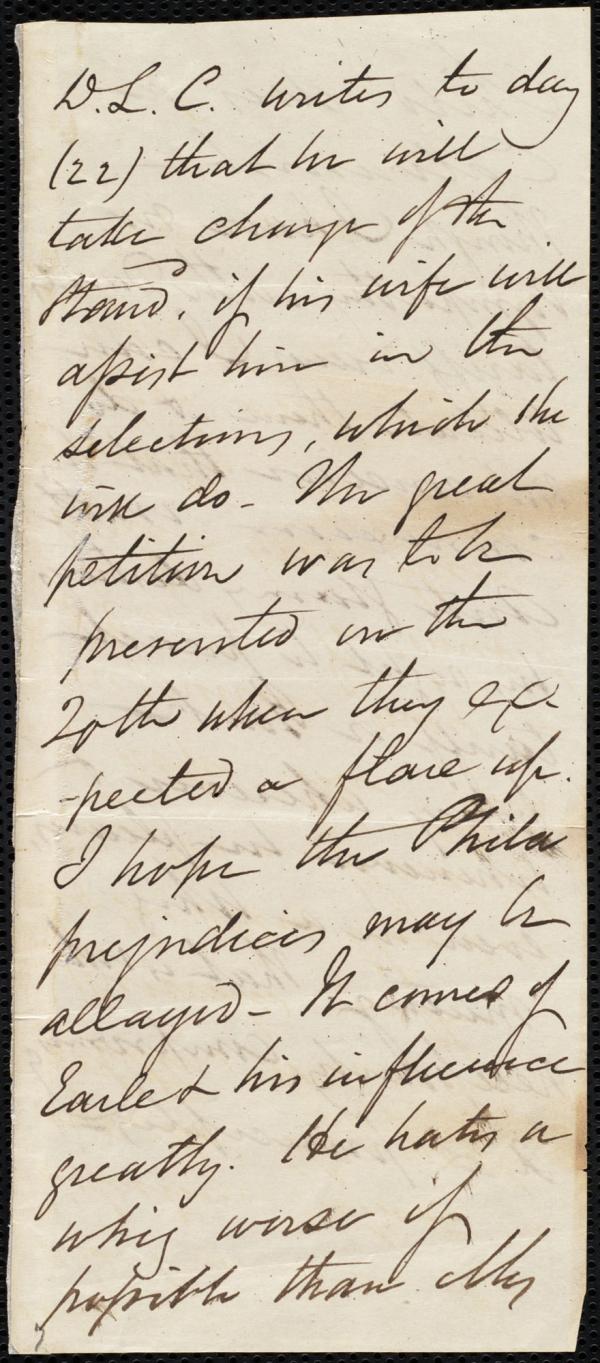 D. L. C. writes to day
(22) that he will
take charge of the
Stand, if his wife will
assist him in the
selections, which she
will do - The great
petition was to be
presented on the
20th when they ex-
-pected a flare up.
I hope the Phila
prejudices may be
allayed - It comes of
Earle & his influence
greatly. He hates a
whig worse if
possible than